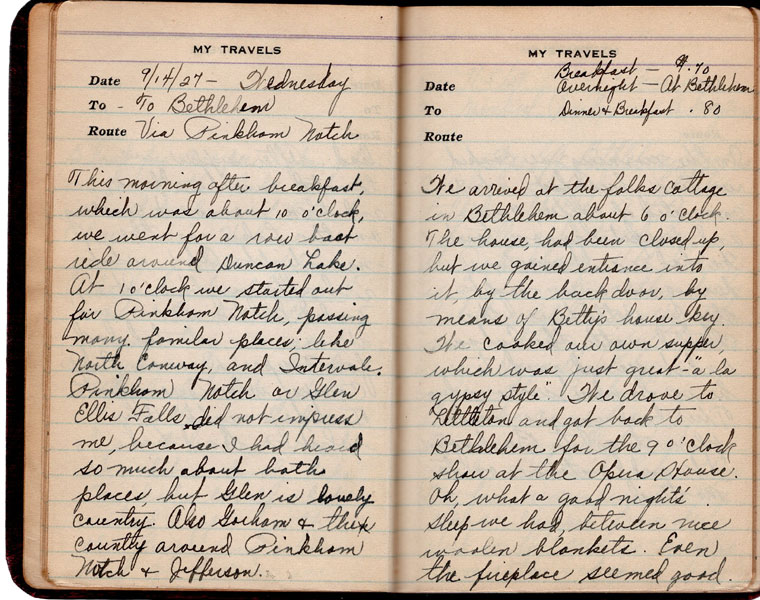 MY TRAVELS
Date 9/14/27 - Wednesday
To - To Bethlehem
Route Via Pinkham Notch
This morning after breakfast,
which was about 10 o'clock,
we went for a row boat
ride around Duncan Lake.
At 1 o'clock we started out
for Pinkham Notch, passing
many familar places, like
North Conway, and Intervale.
Pinkham Notch or Glen
Ellis Falls did not impress
me, because I had heard
so much about both
places, but Glen is lovely
country. Also Gorham & the
country around Pinkham
Notch & Jefferson.
MY TRAVELS
Breakfast - .70
Date Overnight - At Bethlehem
To Dinner & Breakfast .80
Route
We arrived at the folks cottage
in Bethlehem about 6 o'clock.
The house, had been closed up,
but we gained entrance into
it, by the back door, by
means of Betty's house key.
We cooked our own supper,
which was just great - "a la
gypsy style". We drove to
Littleton and got back to
Bethlehem for the 9 o'clock
show at the Opera House.
Oh, what a good night's
sleep we had, between nice
woolen blankets. Even
the fireplace seemed good.